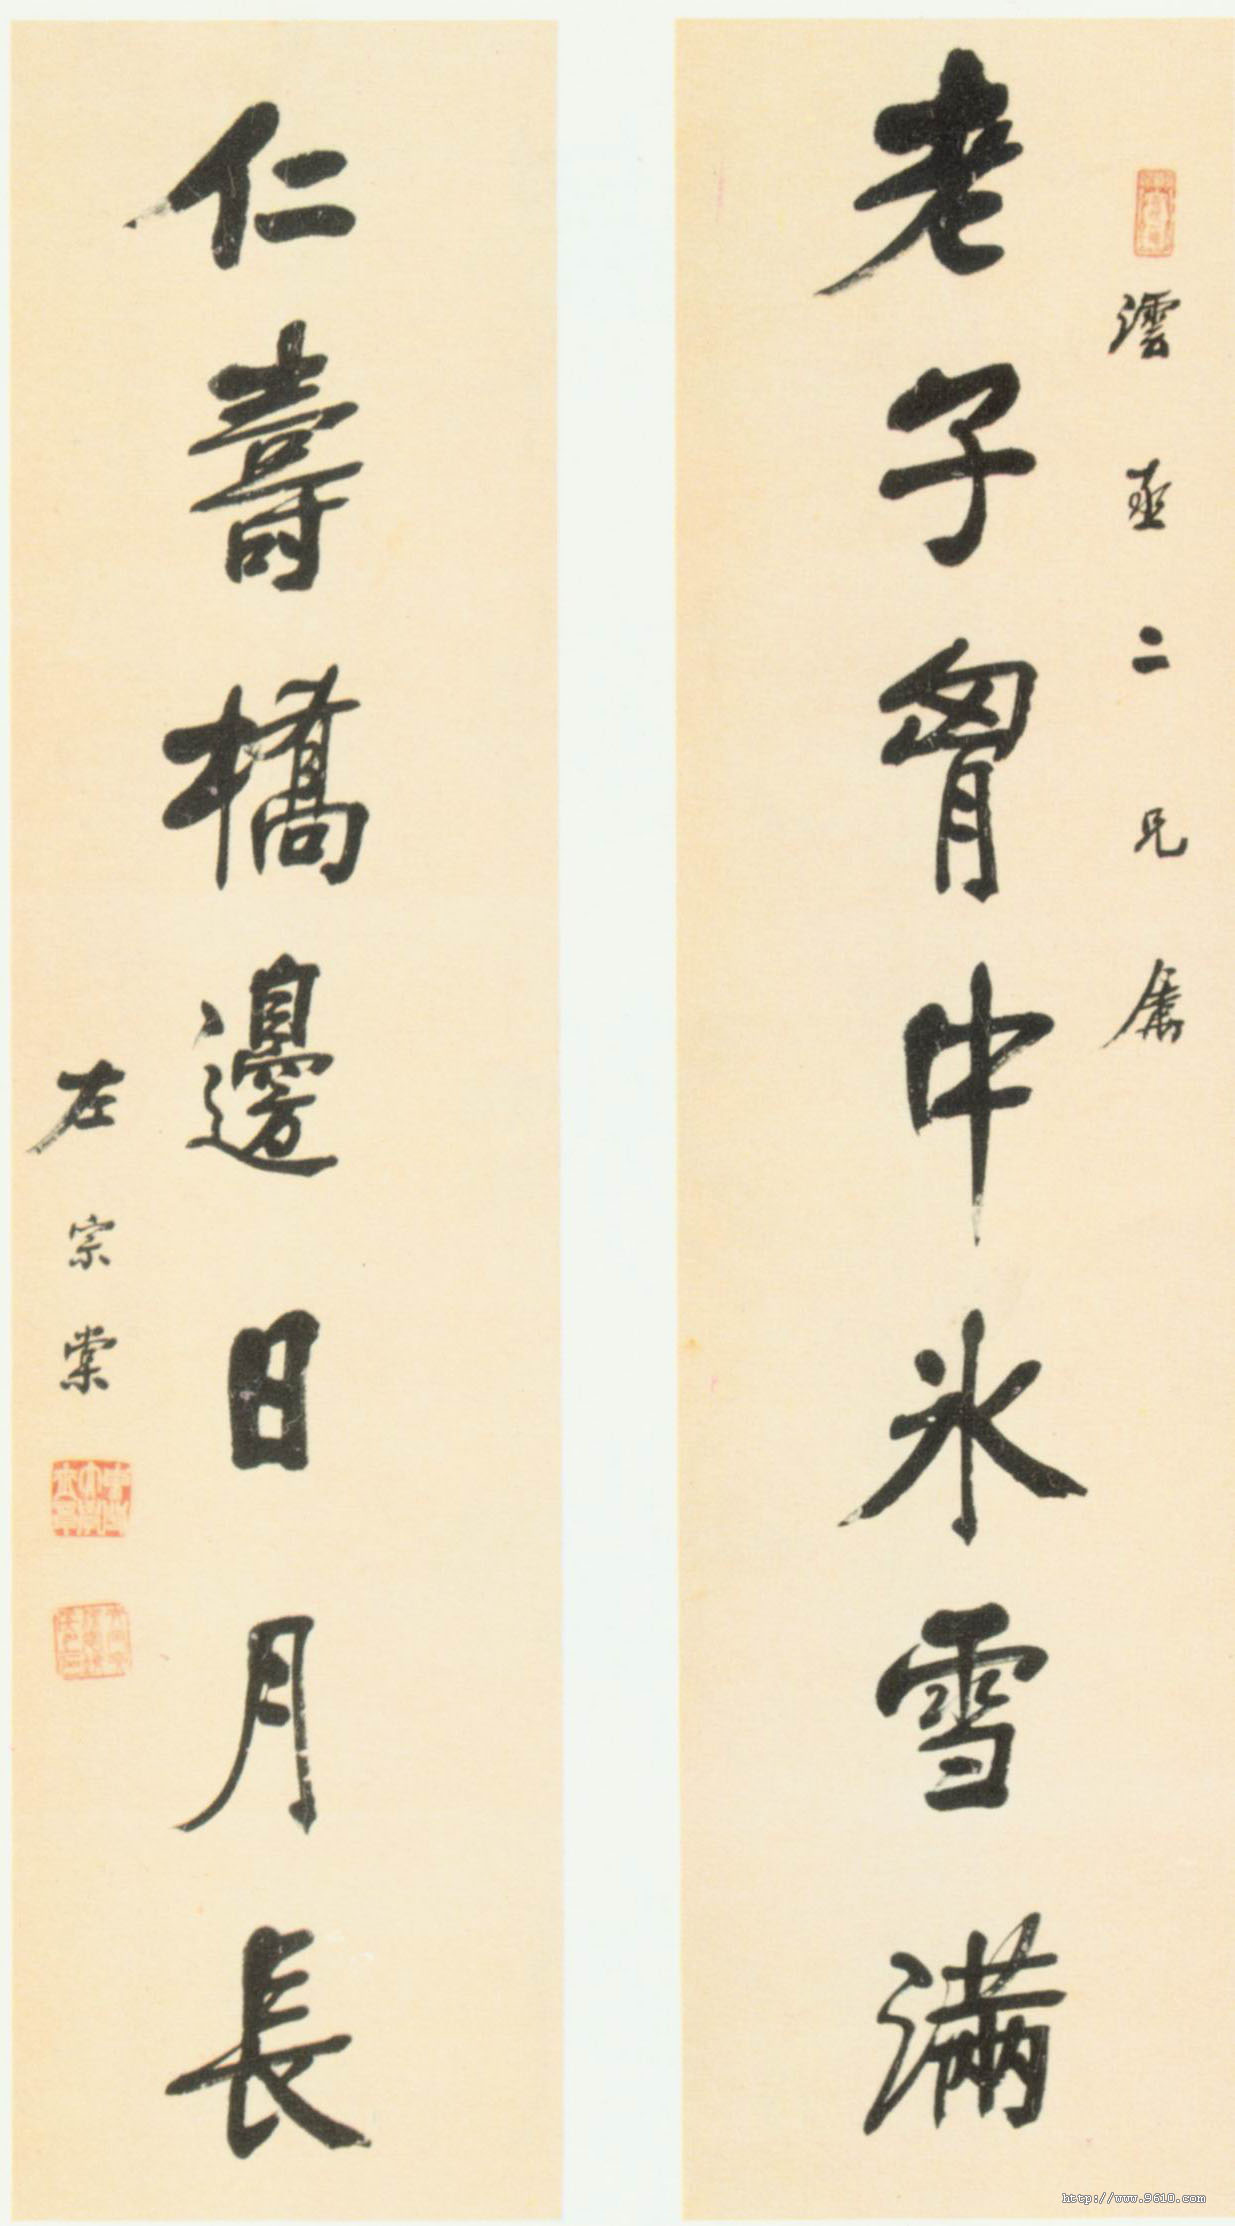 澐 亟 二 兄 屬
老子胷中氷雪滿
仁壽橋邊日月長
左宗棠
http://www.9610.com